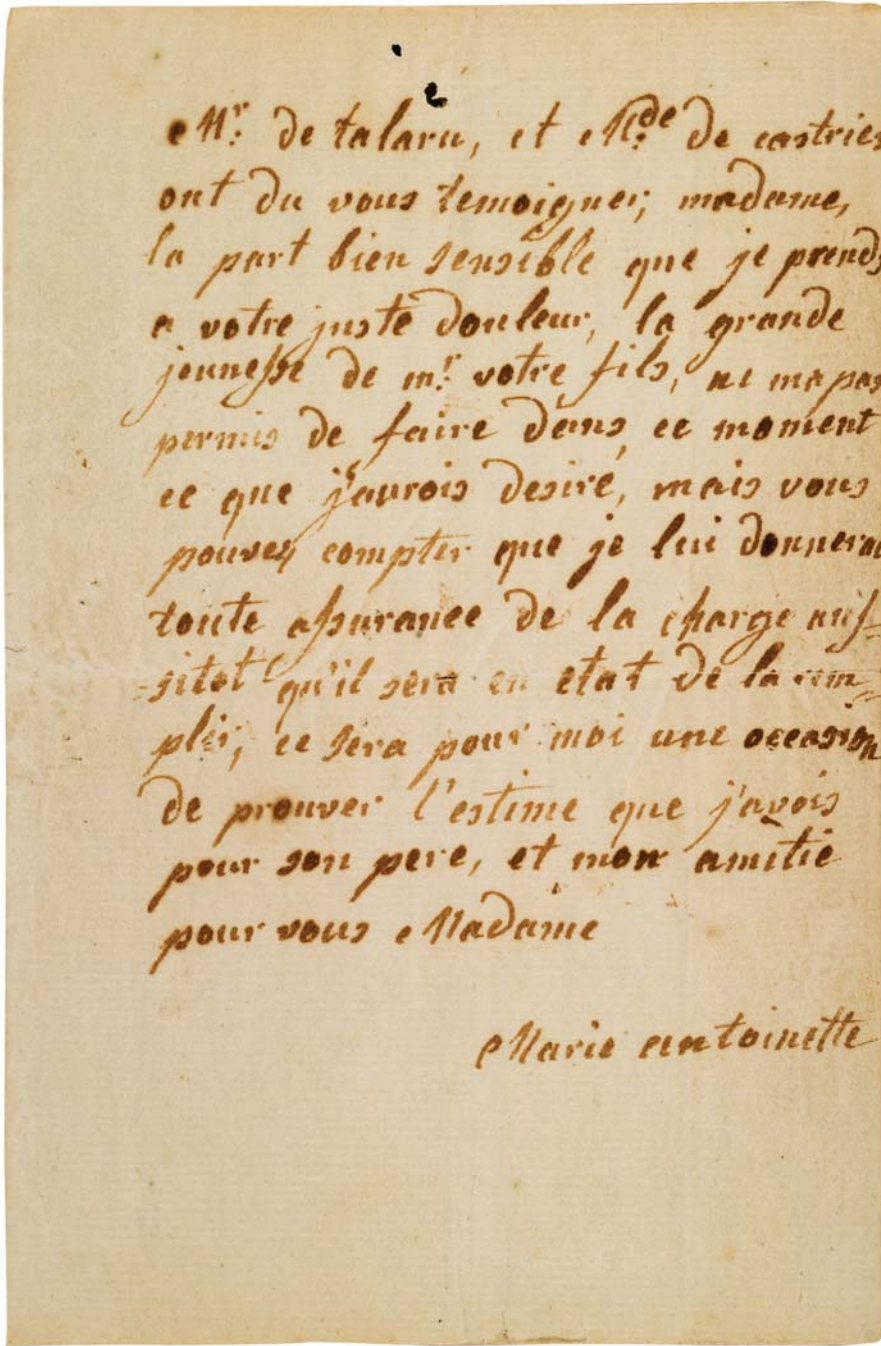 Mr. de talaru, et Mde. de castries
ont du vous temoigner, madame,
la part bien sensible que je prends
a votre juste douleur, la grande
jeunesse de mr. votre fils, ne ma pas
permis de faire dans ce moment
ce que j'aurois desiré, mais vous
pouvez compter que je lui donnerai
toute assurance de la charge aus-
-sitot qu'il sera en etat de la rem-
plir, ce sera pour moi une occasion
de prouver l'estime que j'avois
pour son pere, et mon amitié
pour vous Madame
Marie antoinette